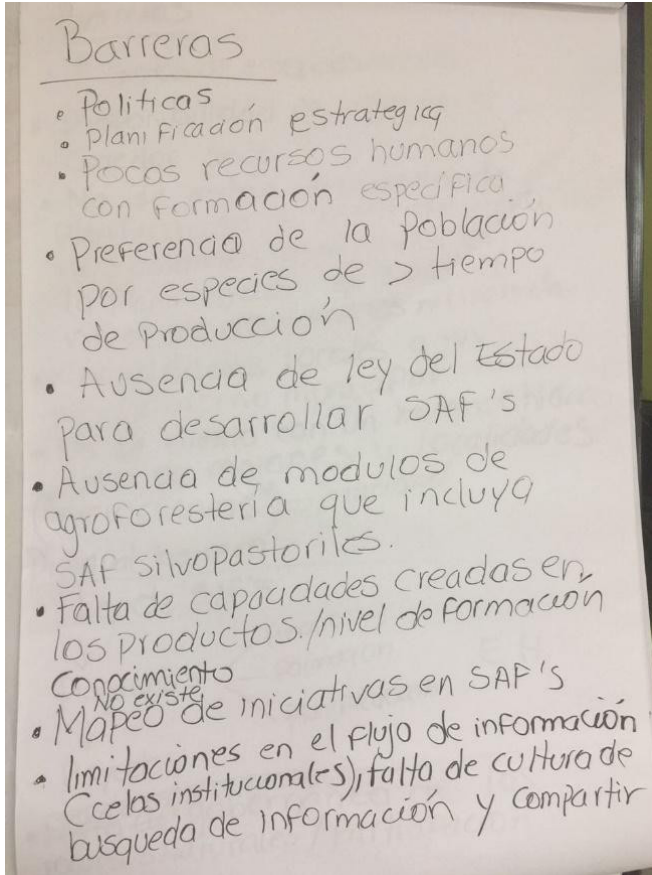 Barreras
• Politicas
• Planificación estrategica
• Pocos recursos humanos
con formación específica
• Preferencia de la Población
por especies de > tiempo
de Producción
• Ausencia de ley del Estado
para desarrollar SAF's
• Ausencia de modulos de
agroforestería que incluya
SAF silvopastoriles.
• Falta de capacidades creadas en
los productos./nivel de formación
Conocimiento
No existe
• Mapeo de iniciativas en SAF's
• limitaciones en el flujo de información
(celos institucionales), falta de cultura de
busqueda de información y compartir